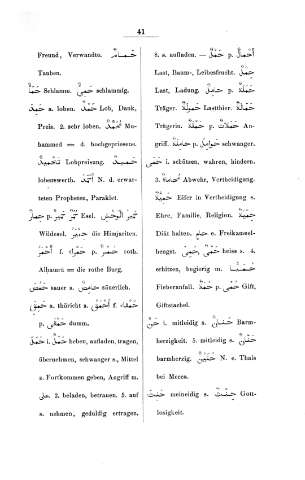 41
Freund, Verwandte. حَمَامٌ
Tauben.
حَمَأٌ Schlamm. حَمِئٌ schlammig.
حَمِدَ a. loben. حَمْدٌ Lob, Dank,
Preis. 2. sehr loben. مُحَمَّدٌ Mu-
hammed — d. hochgepriesene.
تَحْمِيدٌ Lobpreisung. حَمِيدٌ
lobenswerth. أَحْمَدُ N. d. erwar-
teten Propheten, Paraklet.
حِمَارٌ p. حُمُرٌ Esel.
Wildesel. حِمْيَرُ die Himjariten.
أَحْمَرُ f. حَمْرَاءُ p. حُمْرٌ roth.
Alhamra === die rothe Burg.
حَمُضَ sauer s. حَامِضٌ säuerlich.
حَمُقَ a. thöricht s. أَحْمَقُ f. حَمْقَاءُ
p. حَمْقَى dumm.
حَمَلَ i. حَمْلٌ heben, aufladen, tragen,
übernehmen, schwanger s., Mittel
z. Fortkommen geben, Angriff m.
على. 2. beladen, betrauen. 5. auf
s. nehmen, geduldig ertragen.
8. s. aufladen. — حَمْلٌ p. أَحْمَالٌ
Last, Baum-, Leibesfrucht. حِمْلٌ
Last, Ladung. حَامِلٌ p. حَمَلَةٌ
Träger. حَمُولَةٌ Lastthier. حَمَّالَةٌ
Trägerin. حَمْلَةٌ p. حَمَلَاتٌ An-
griff. حَوَامِلُ p. حَامِلٌ schwanger.
حَمَى i. schützen, wahren, hindern.
3. حِمَايَةٌ Abwehr, Vertheidigung.
حَمِيَّةٌ Eifer in Vertheidigung s.
Ehre, Familie, Religion.
Diät halten. حَامٍ e. Freikamel-
hengst. حَمِيَ heiss s. d.
erhitzen, begierig m.
Fieberanfall. حُمَةٌ p. Gift,
Giftstachel.
حَنَّ i. mitleidig s. حَنَانٌ Barm-
herzigkeit. 5. mitleidig s.
barmherzig. حُنَيْنٌ N. e. Thals
bei Mecca.
حَنِثَ meineidig s. حِنْثٌ Gott-
losigkeit.